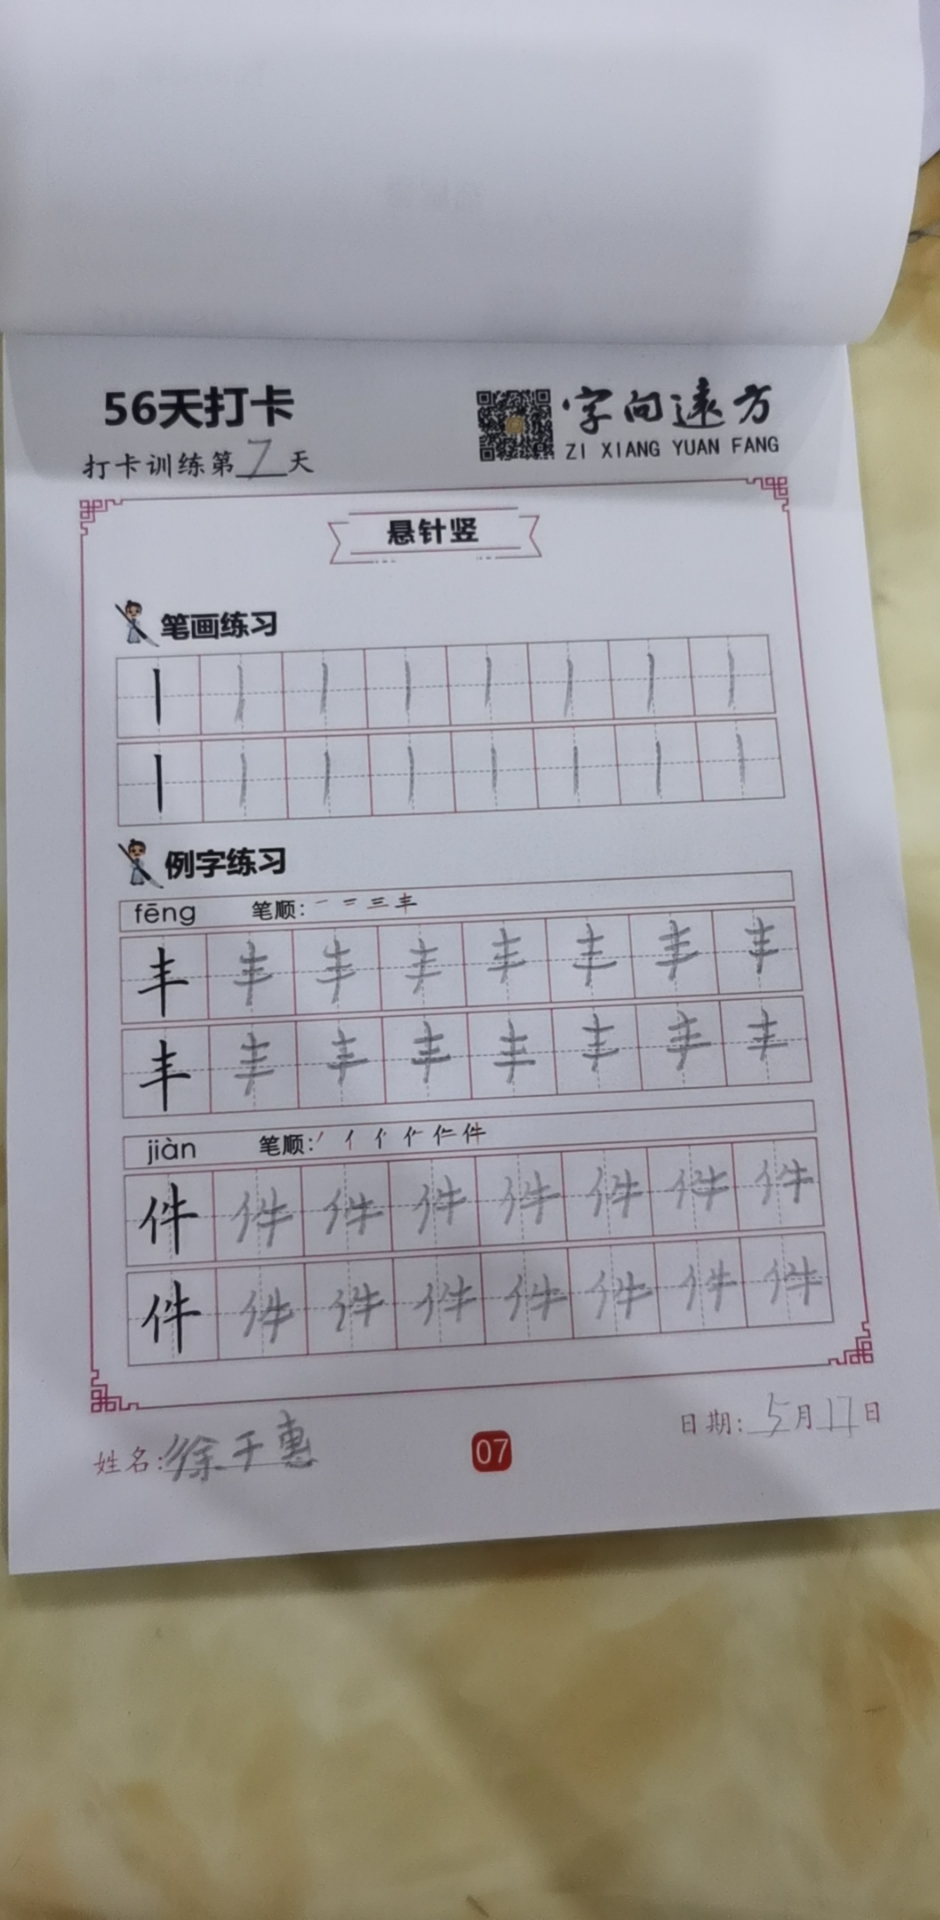 56天打卡
字向远方
ZI XIANG YUAN FANG
打卡训练第7天
悬针竖
笔画练习
丨 丨 丨 丨 丨 丨 丨 丨
丨 丨 丨 丨 丨 丨 丨 丨
例字练习
fēng 笔顺: 一 二 三 丰
丰 丰 丰 丰 丰 丰 丰 丰
丰 丰 丰 丰 丰 丰 丰 丰
jiàn 笔顺: 丿 亻 件
件 件 件 件 件 件 件 件
件 件 件 件 件 件 件 件
姓名:徐千惠
07
日期: 5月17日